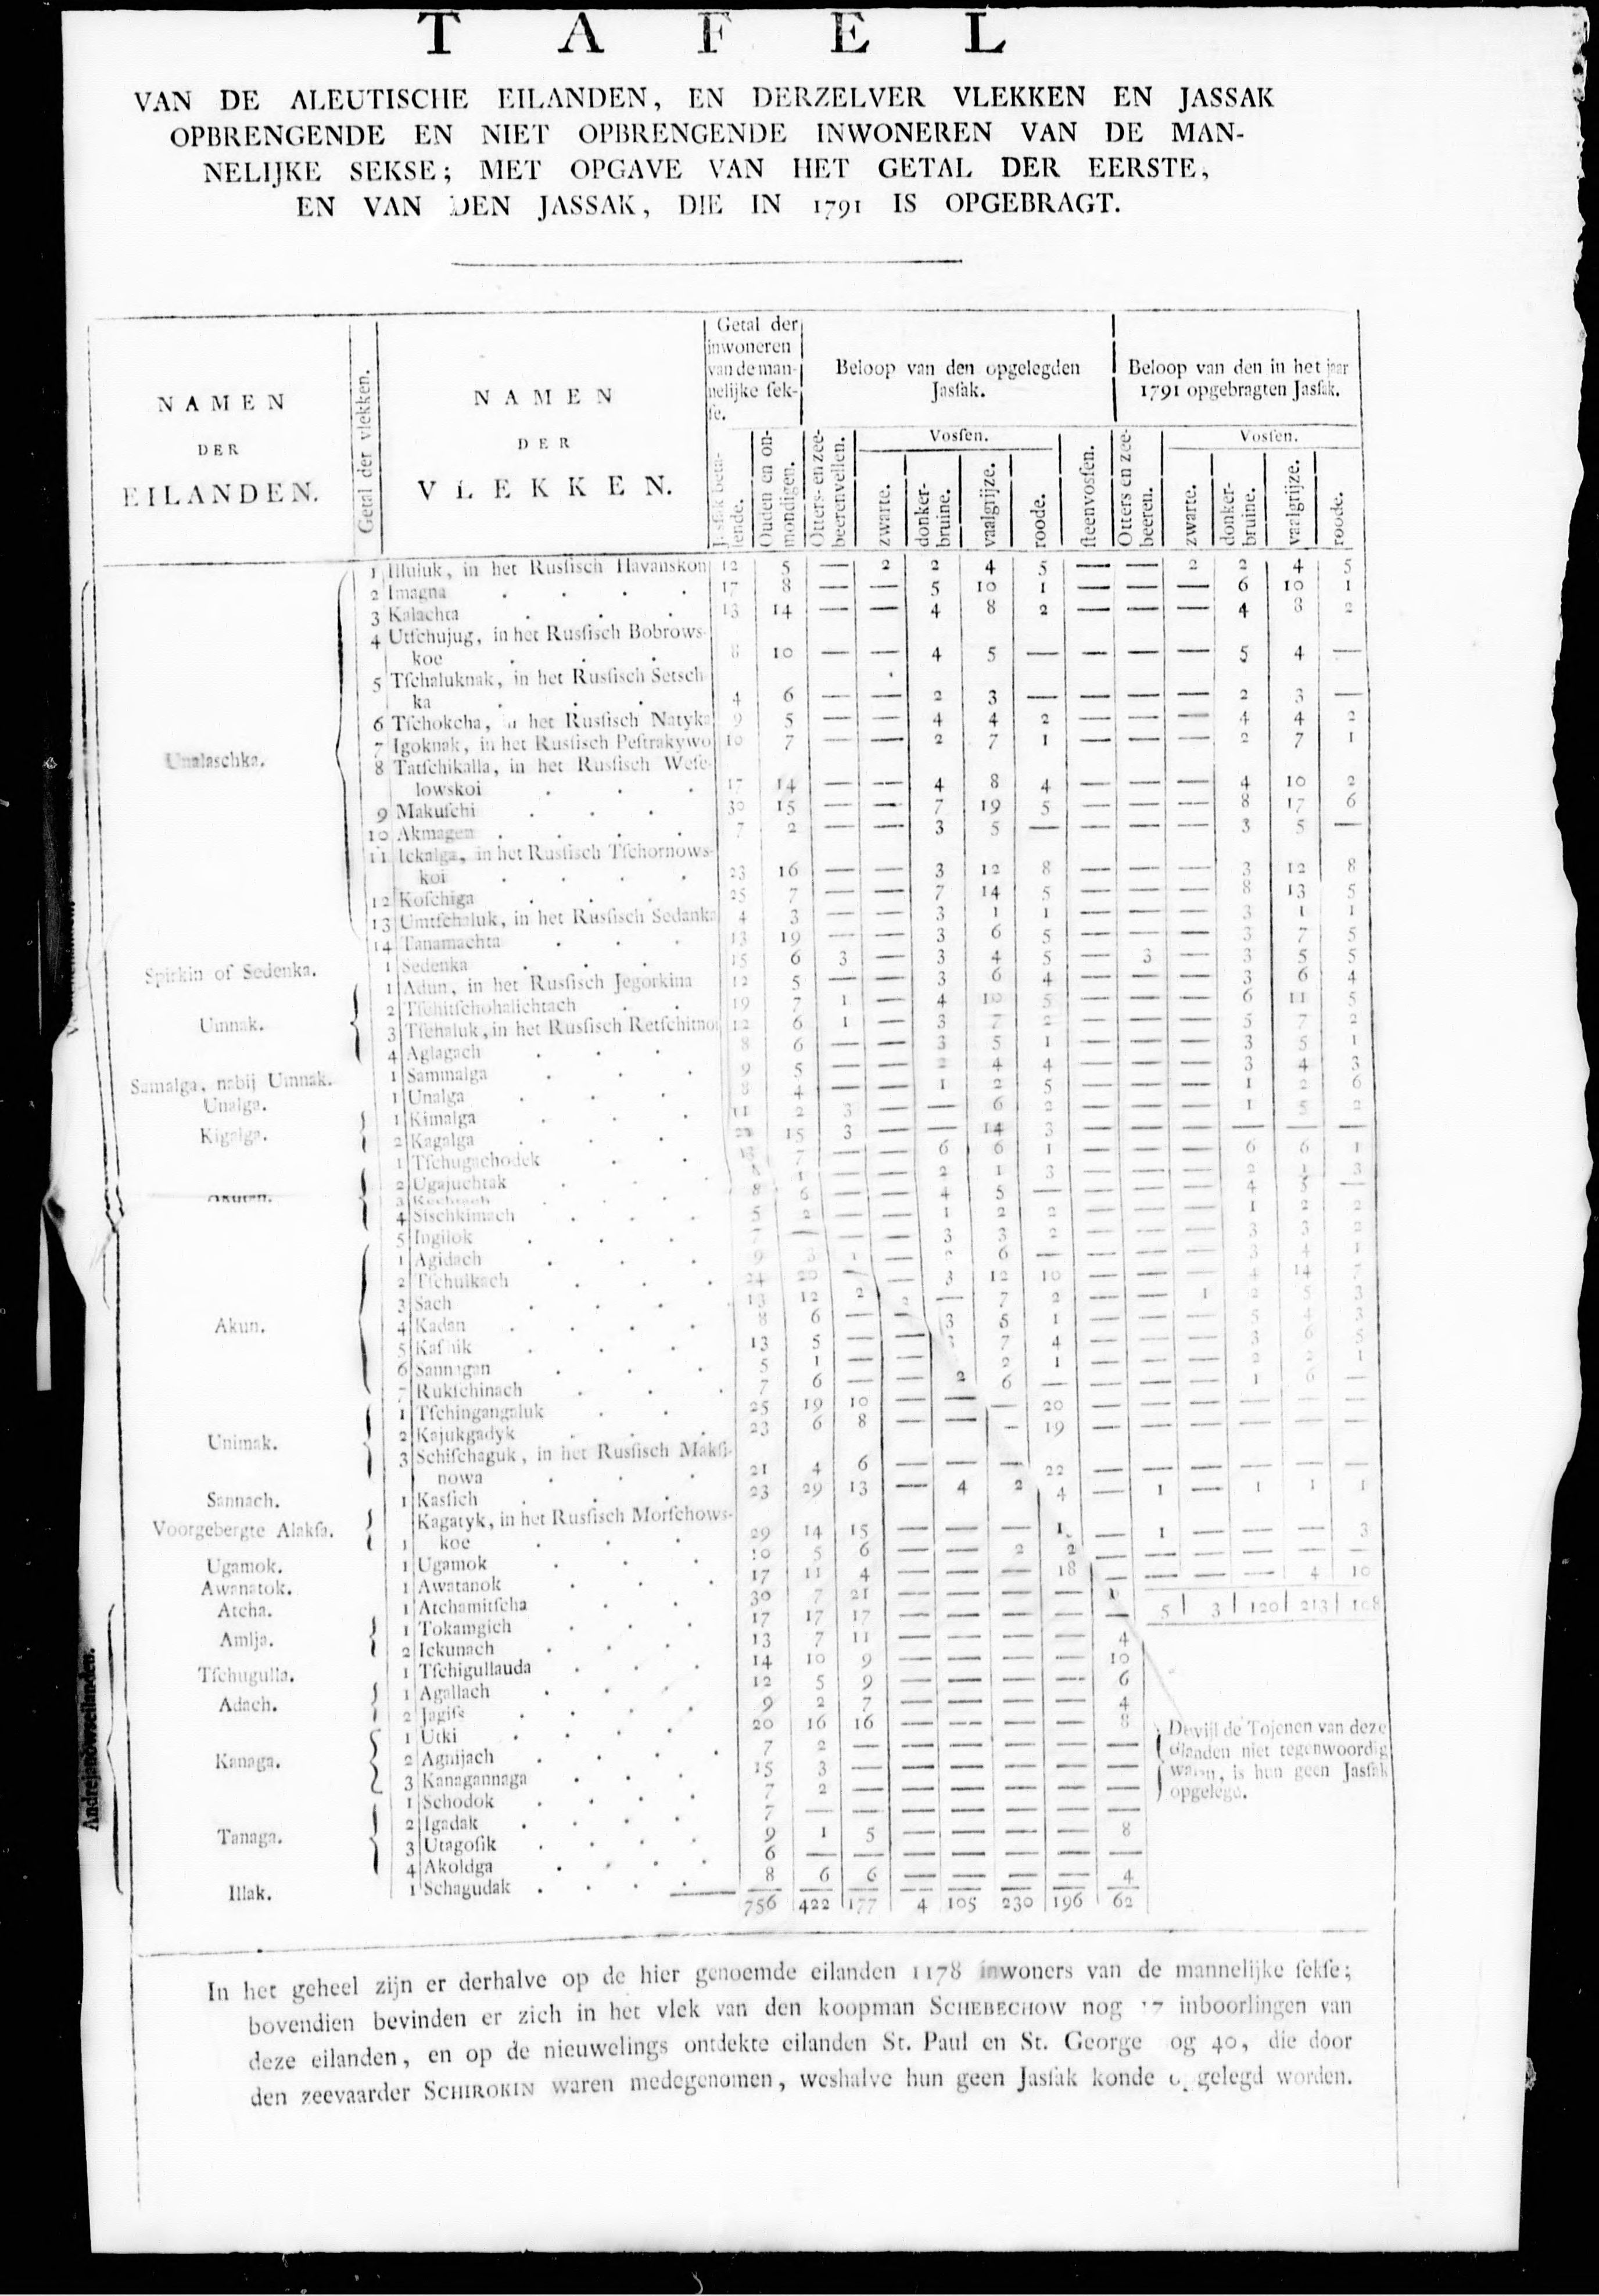 TAFEL
VAN DE ALEUTISCHE EILANDEN, EN DERZELVER VLEKKEN EN JASSAK
OPBRENGENDE EN NIET OPBRENGENDE INWONEREN VAN DE MAN-
NELIJKE SEKSE; MET OPGAVE VAN HET GETAL DER EERSTE,
EN VAN DEN JASSAK, DIE IN 1791 IS OPGEBRAGT.
NAMEN DER EILANDEN.
Getal der vlekken.
NAMEN DER VLEKKEN.
Getal der
inwoneren
van de man-
nelijke ſek-
ſe.
Jasſak beta-
lende.
Ouden en on-
mondigen.
Beloop van den opgelegden
Jasſak.
Otters- en zee-
beerenvellen.
Vosſen.
zwarte.
donker-
bruine.
vaalgrijze.
roode.
ſteenvosſen.
Beloop van den in het jaar
1791 opgebragten Jasſak.
Otters en zee-
beeren.
Vosſen.
zwarte.
donker-
bruine.
vaalgrijze.
roode.
Unalaschka.
1 Illuluk, in het Rusſisch Havanskon 12 5 — 2 2 4 5 — — 2 2 4 5
2 Imagna . . . . 17 8 — — 5 10 1 — — — 6 10 1
3 Kalachta . . . 13 14 — — 4 8 2 — — — 4 8 2
4 Utſchujug, in het Rusſisch Bobrows-
koe . . . 8 10 — — 4 5 — — — — 5 4 —
5 Tſchaluknak, in het Rusſisch Setsch-
ka . . . 4 6 — — 2 3 — — — — 2 3 —
6 Tſchokcha, in het Rusſisch Natyka 9 5 — — 4 4 2 — — — 4 4 2
7 Igoknak, in het Rusſisch Peſtrakywo 10 7 — — 2 7 1 — — — 2 7 1
8 Tatſchikalla, in het Rusſisch Weſe-
lowskoi . . . 17 14 — — 4 8 4 — — — 4 10 2
9 Makuſchi . . . 30 15 — — 7 19 5 — — — 8 17 6
10 Akmagen . . . . 7 2 — — 3 5 — — — — 3 5 —
11 Ickalga, in het Rusſisch Tſchornows-
koi . . . . 23 16 — — 3 12 8 — — — 3 12 8
12 Koſchiga . . . 25 7 — — 7 14 5 — — — 8 13 5
13 Umtſchaluk, in het Rusſisch Sedanka 4 3 — — 3 1 1 — — — 3 1 1
14 Tanamachta . . . 13 19 — — 3 6 5 — — — 3 7 5
Spirkin of Sedenka. 1 Sedenka . . . 15 6 3 — 3 4 5 — 3 — 3 5 5
Umnak.
1 Adun, in het Rusſisch Jegorkina 12 5 — — 3 6 4 — — — 3 6 4
2 Tſchitſchohalichtach . . 19 7 1 — 4 10 5 — — — 6 11 5
3 Tſchaluk, in het Rusſisch Retſchitnoi 12 6 1 — 3 7 2 — — — 5 7 2
4 Aglagach . . . 8 6 — — 3 5 1 — — — 3 5 1
Samalga, nabij Umnak. 1 Sammalga . . . 9 5 — — 2 4 4 — — — 3 4 3
Unalga. 1 Unalga . . . 8 4 — — 1 2 5 — — — 1 2 6
Kigalga.
1 Kimalga . . . 11 2 3 — — 6 2 — — — 1 5 2
2 Kagalga . . . 15 3 — — 14 3 — — — — — —
1 Tſchugachodek . . 13 7 — — 6 6 1 — — — 6 6 1
2 Ugajuchtak . . . 1 — — 2 1 3 — — — 2 1 3
3 . . . 8 6 — — 4 5 — — — — 4 5 —
4 Sischkimach . . . 5 2 — — 1 2 2 — — — 1 2 2
5 Ingilok . . . 7 — — — 3 3 2 — — — 3 3 2
Akun.
1 Agidach . . . 9 3 1 — 6 — — — — 3 4 1
2 Tſchulkach . . . 24 20 — — 3 12 10 — — — 4 14 7
3 Sach . . . . 13 12 2 2 — 7 2 — — 1 2 5 3
4 Kadan . . . . 8 6 — — 3 5 1 — — — 5 4 3
5 . . . 13 5 — — 3 7 4 — — — 3 6 5
6 Sannagan . . . 5 1 — — 2 1 — — — 2 2 1
7 Rukſchinach . . . 7 6 — — 2 6 — — — — 1 6 —
Unimak.
1 Tſchingangaluk . . 25 19 10 — — — 20 — — — — — —
2 Kajukgadyk . . . 23 6 8 — — — 19 — — — — — —
3 Schiſchaguk, in het Rusſisch Makſi-
nowa . . . 21 4 6 — — — 22 — — — — — —
Sannach. 1 Kasſich . . . 23 29 13 — 4 2 4 — 1 — 1 1 1
Voorgebergte Alakſa.
Kagatyk, in het Rusſisch Morſchows-
1 koe . . . 29 14 15 — — — 1 — 1 — — — 3
Ugamok. 1 Ugamok . . . 10 5 6 — — 2 2 — — — — — —
Awanatok. 1 Awatanok . . . 17 11 4 — — — 18 — — — — 4 10
Atcha. 1 Atchamitſcha . . 30 7 21 — — — —
5 3 120 213 108
Amlja.
1 Tokamgich . . . 17 17 17 — — — — —
2 Ickunach . . . 13 7 11 — — — — 4
Tſchugulla. 1 Tſchigullauda . . . 14 10 9 — — — — 10
Adach.
1 Agallach . . . 12 5 9 — — — — 6
2 Jagiſs . . . 9 2 7 — — — — 4
Kanaga.
1 Utki . . . . 20 16 16 — — — — 8
2 Agnijach . . . . 7 2 — — — — — —
3 Kanagannaga . . . 15 3 — — — — — —
Tanaga.
1 Schodok . . . . 7 2 — — — — — —
2 Igadak . . . . 7 — — — — — — —
3 Utagoſik . . . . 9 1 5 — — — — 8
4 Akoldga . . . . 6 — — — — — — —
Illak. 1 Schagudak . . . . 8 6 6 — — — — 4
756 422 177 4 105 230 196 62
Andrejanowseilanden.
Dewijl de Tojenen van deze
eilanden niet tegenwoordig
waren, is hun geen Jasſak
opgelegd.
In het geheel zijn er derhalve op de hier genoemde eilanden 1178 inwoners van de mannelijke ſekſe;
bovendien bevinden er zich in het vlek van den koopman SCHEBECHOW nog 17 inboorlingen van
deze eilanden, en op de nieuwelings ontdekte eilanden St. Paul en St. George og 40, die door
den zeevaarder SCHIROKIN waren medegenomen, weshalve hun geen Jasſak konde opgelegd worden.